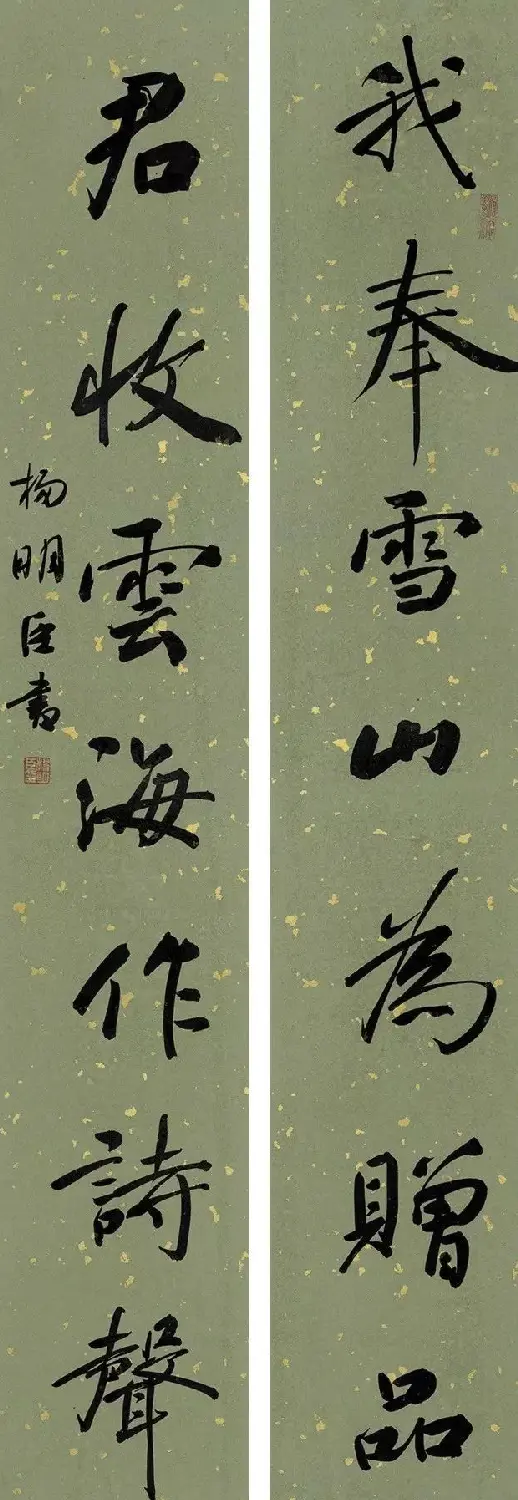 我奉雪山為贈品
君收雲海作詩聲
楊明臣書